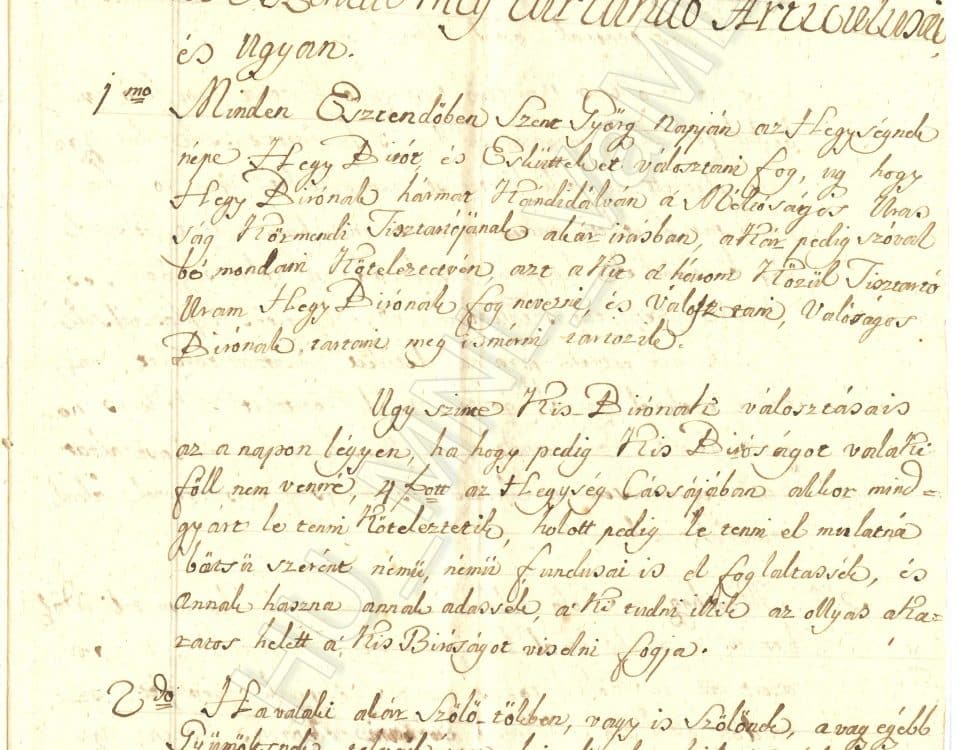 meg tartandó Articulusai,
és Ugyan.
1 mo Minden Esztendőben Szent György Napján az Hegységnek
népe Hegy Birót és Eskütteket választani fog, ug hogy
Hegy Birónak hármat Kándidálván á Méltóságos Ura-
ság Körmendi Tisztartójának akár irásban, a Kár pedig szóval
bé mondani Köteleztetvén, azt a Kit á három Közül Tisztartó
Uram Hegy Birónak fog nevezni, és választani, Valóságos
Birónak tartani meg ismérni tartozik.
Ugy szinte Kis-Birónak választásais
az a napon légyen, ha hogy pedig Kis Biróságot valaki
föll nem venné, 4 fott az Hegység Cassájában akkor mind-
gyárt le tenni Köteleztetik, holott pedig le tenni el mulatná
bötsü szerént némü, némü fundusai is el foglaltassék, és
Annak haszna annak adassék, a Ki tudni illik az ollyas aka-
ratos helétt á Kis Biróságot viselni fogja.
2 do Ha valaki akár Szőlő-tőkben, vagy is Szőlőnek, a vag égébb
Gyümöltsnek
HU_MNL_VaML